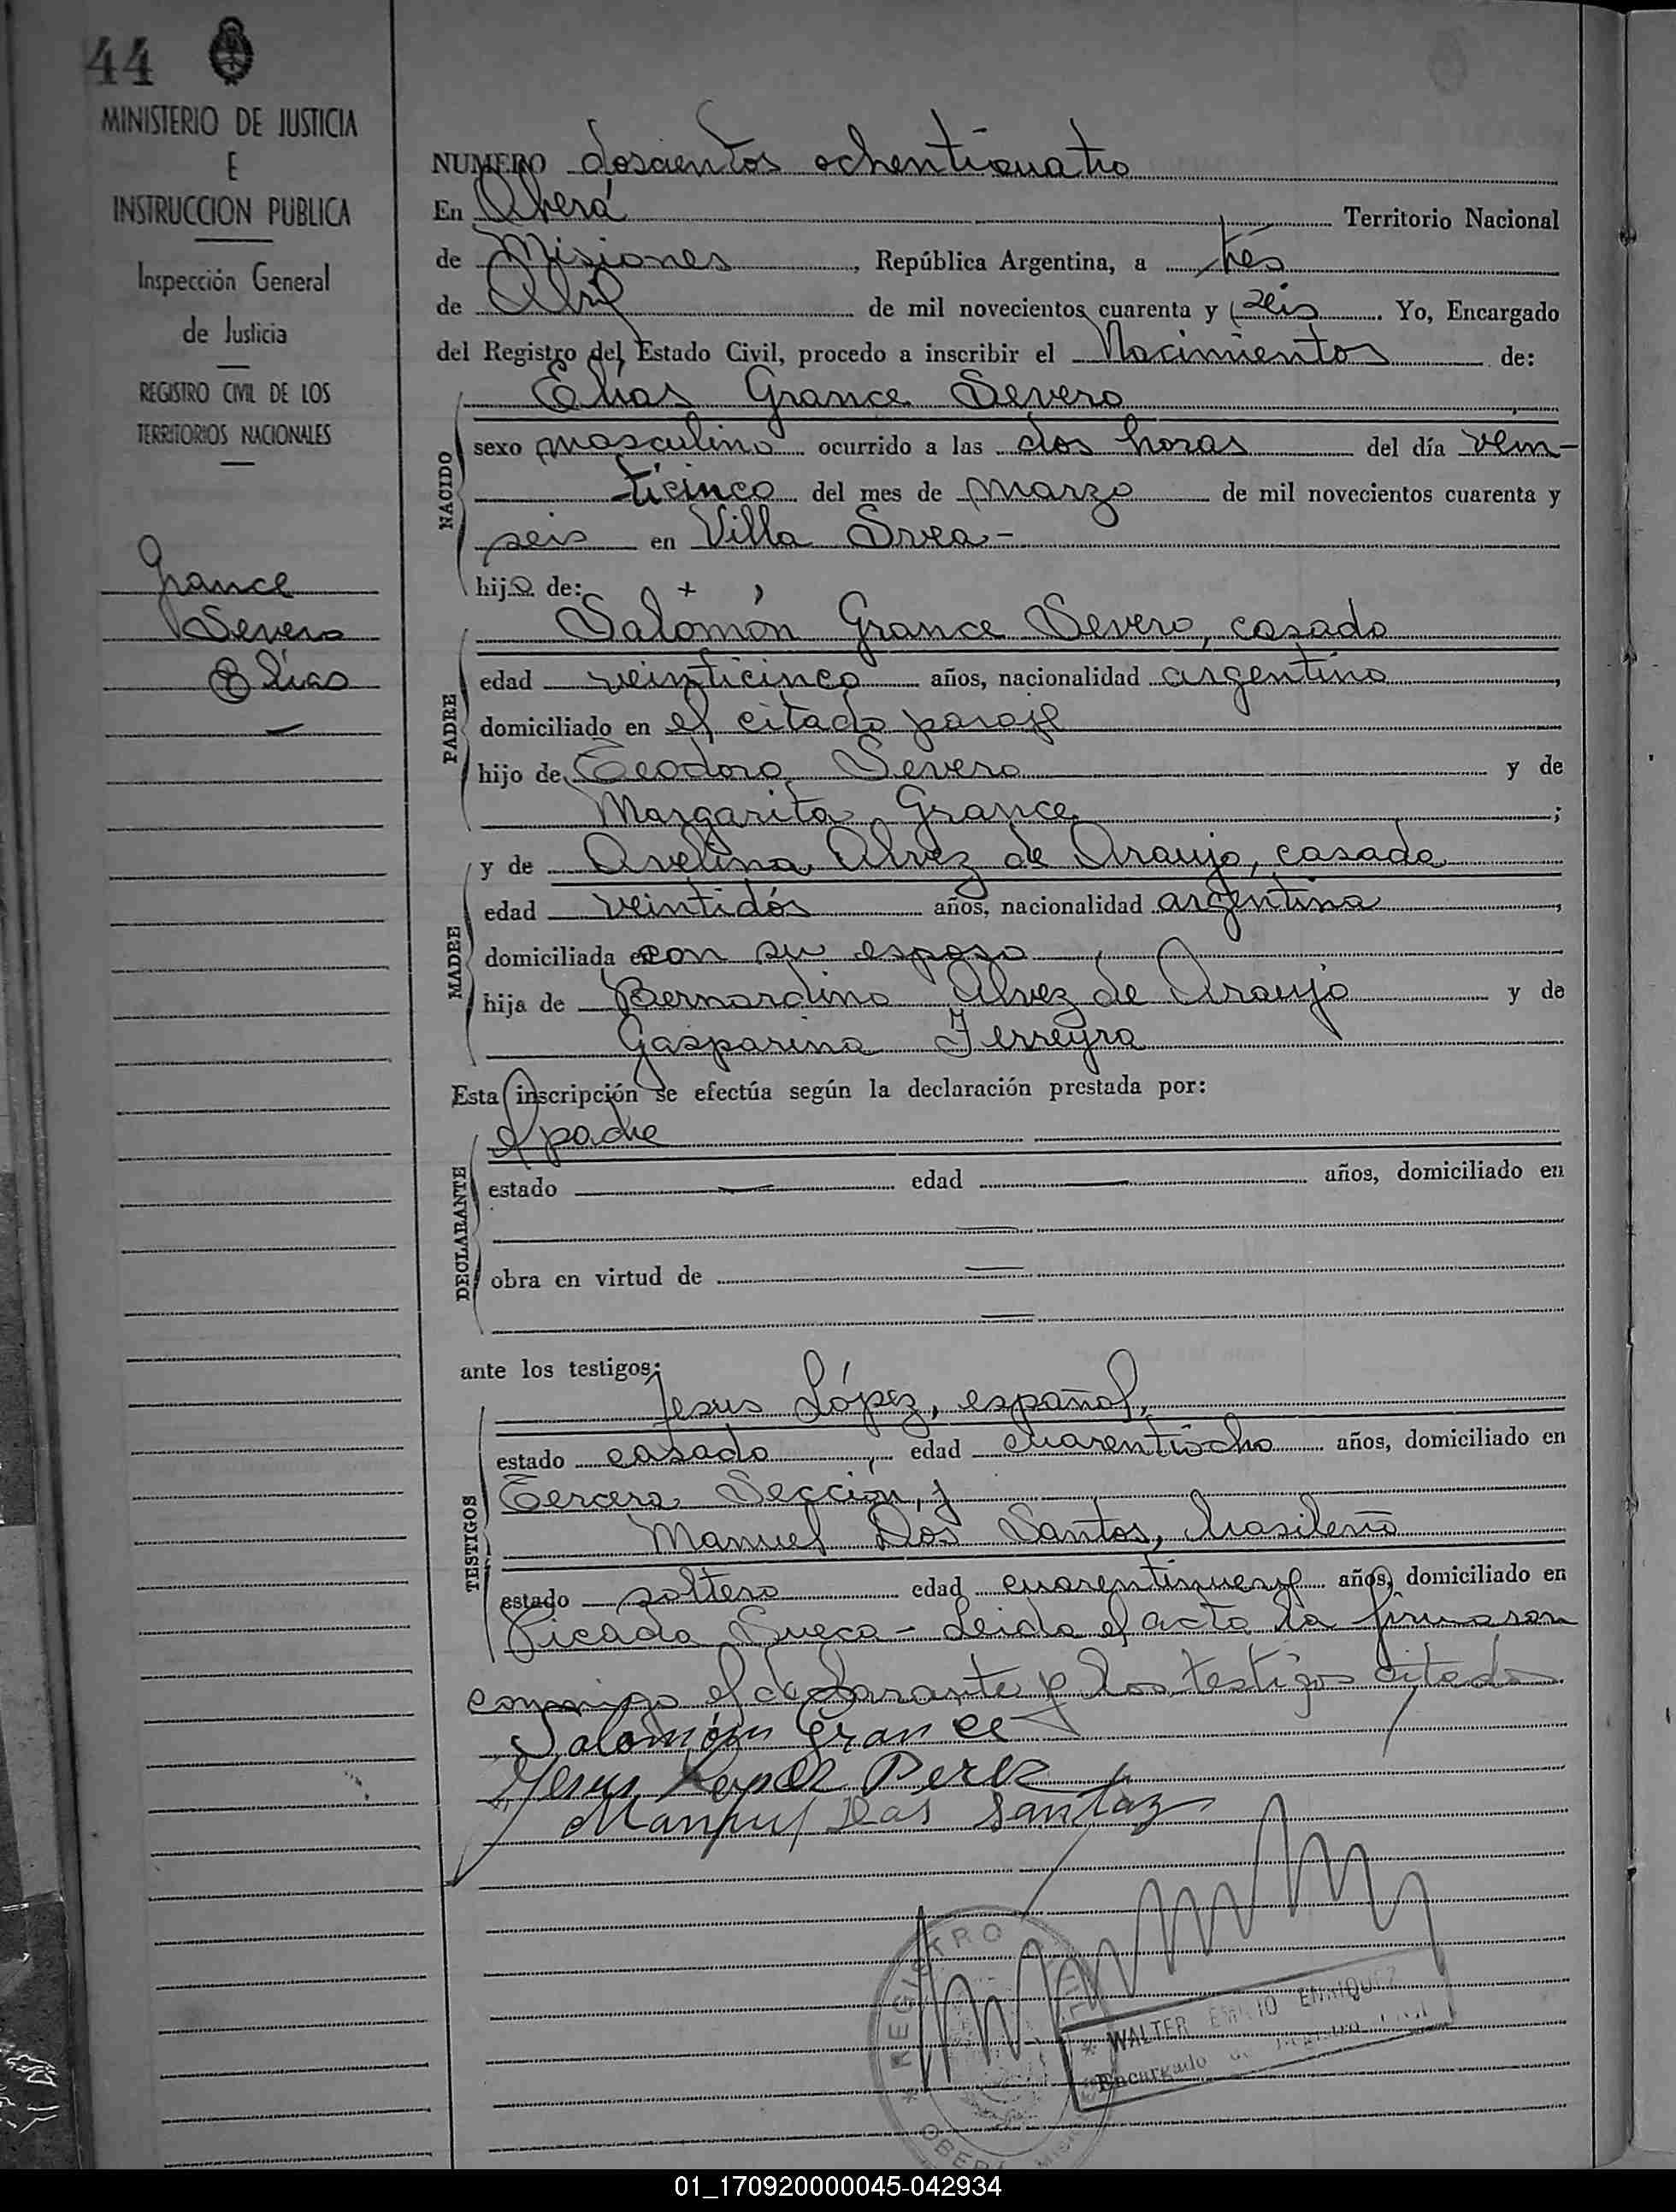 44
MINISTERIO DE JUSTICIA
E
INSTRUCCION PUBLICA
Inspección General
de Justicia
REGISTRO CIVIL DE LOS
TERRITORIOS NACIONALES
Grance
Severo
Elías
NUMERO doscientos ochenticuatro
En Oberá Territorio Nacional
de Misiones, República Argentina, a tres
de Abril de mil novecientos cuarenta y seis. Yo, Encargado
del Registro del Estado Civil, procedo a inscribir el Nacimientos de:
Elías Grance Severo
NACIDO
sexo masculino ocurrido a las dos horas del día vein-
ticinco del mes de marzo de mil novecientos cuarenta y
seis en Villa Svea-
hijo de:
Salomón Grance Severo, casado
PADRE
edad veinticinco años, nacionalidad argentino,
domiciliado en el citado paraje
hijo de Teodoro Severo y de
Margarita Grance;
MADRE
y de Avelina Alvez de Araujo, casada
edad veintidós años, nacionalidad argentina,
domiciliada con su esposo
hija de Bernardino Alvez de Araujo y de
Gasparina Ferreyra
Esta inscripción se efectúa según la declaración prestada por:
DECLARANTE
el padre
estado — edad — años, domiciliado en
obra en virtud de
ante los testigos:
TESTIGOS
Jesus López, español,
estado casado, edad cuarentiocho años, domiciliado en
Tercera Sección, y
Manuel Dos Santos, brasileño
estado soltero edad cuarentinueve años, domiciliado en
Picada Sueca - Leida el acta la firmaron
conmigo el declarante y los testigos citados
Salomón Grance
Jesus Lopez Perez
Manuel Dos Santoz
REGISTRO CIVIL
OBERÁ MISIONES
WALTER EMILIO ENRIQUEZ
Encargado de Registro Civil
01_170920000045-042934